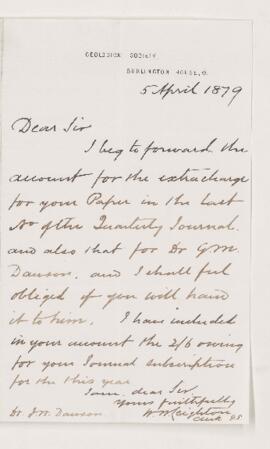 GEOLOGICAL SOCIETY,
BURLINGTON HOUSE, W.
5 April 1879
Dear Sir
I beg to forward the
account for the extra charge
for your Paper in the last
No of the Quarterly Journal.
and also that for Dr G.M.
Dawson, and I shall feel
obliged if you will hand
it to him. I have included
in your account the 2/6 owing
for your Journal subscription
for the this year
I am, dear Sir,
Yours faithfully
W W Leighton
Clerk
Dr. J.W. Dawson